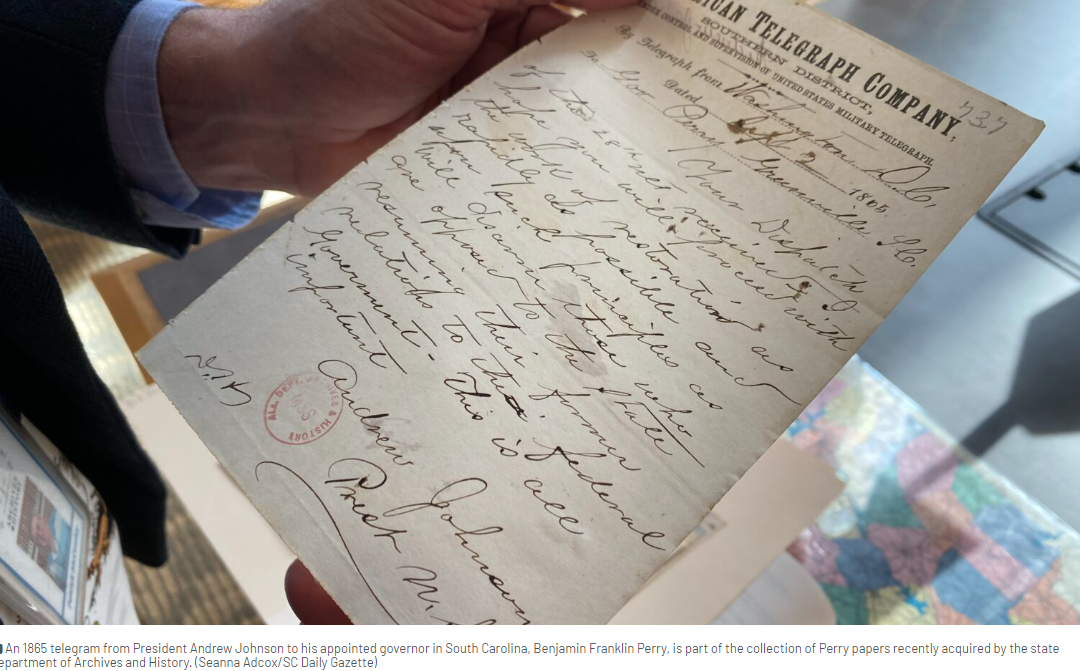 ICAN TELEGRAPH COMPANY,
SOUTHERN DISTRICT,
UNDER CONTROL AND SUPERVISION OF UNITED STATES MILITARY TELEGRAPH.
737
By Telegraph from Washington D.C.
Dated Sept 2 1865.
To Gov Perry Greenville S.C.
Your Dispatch
of the 28th received. I
hope you will proceed with
the work of restoration as
rapidly as possible and
upon such principles as
will disarm those who
are opposed to the State
resuming their former
relations to the federal
Government. This is all
important
Andrew Johnson
Prest U.
ALA. DEPT. ARCHIVES & HISTORY
An 1865 telegram from President Andrew Johnson to his appointed governor in South Carolina, Benjamin Franklin Perry, is part of the collection of Perry papers recently acquired by the state
epartment of Archives and History. (Seanna Adcox/SC Daily Gazette)